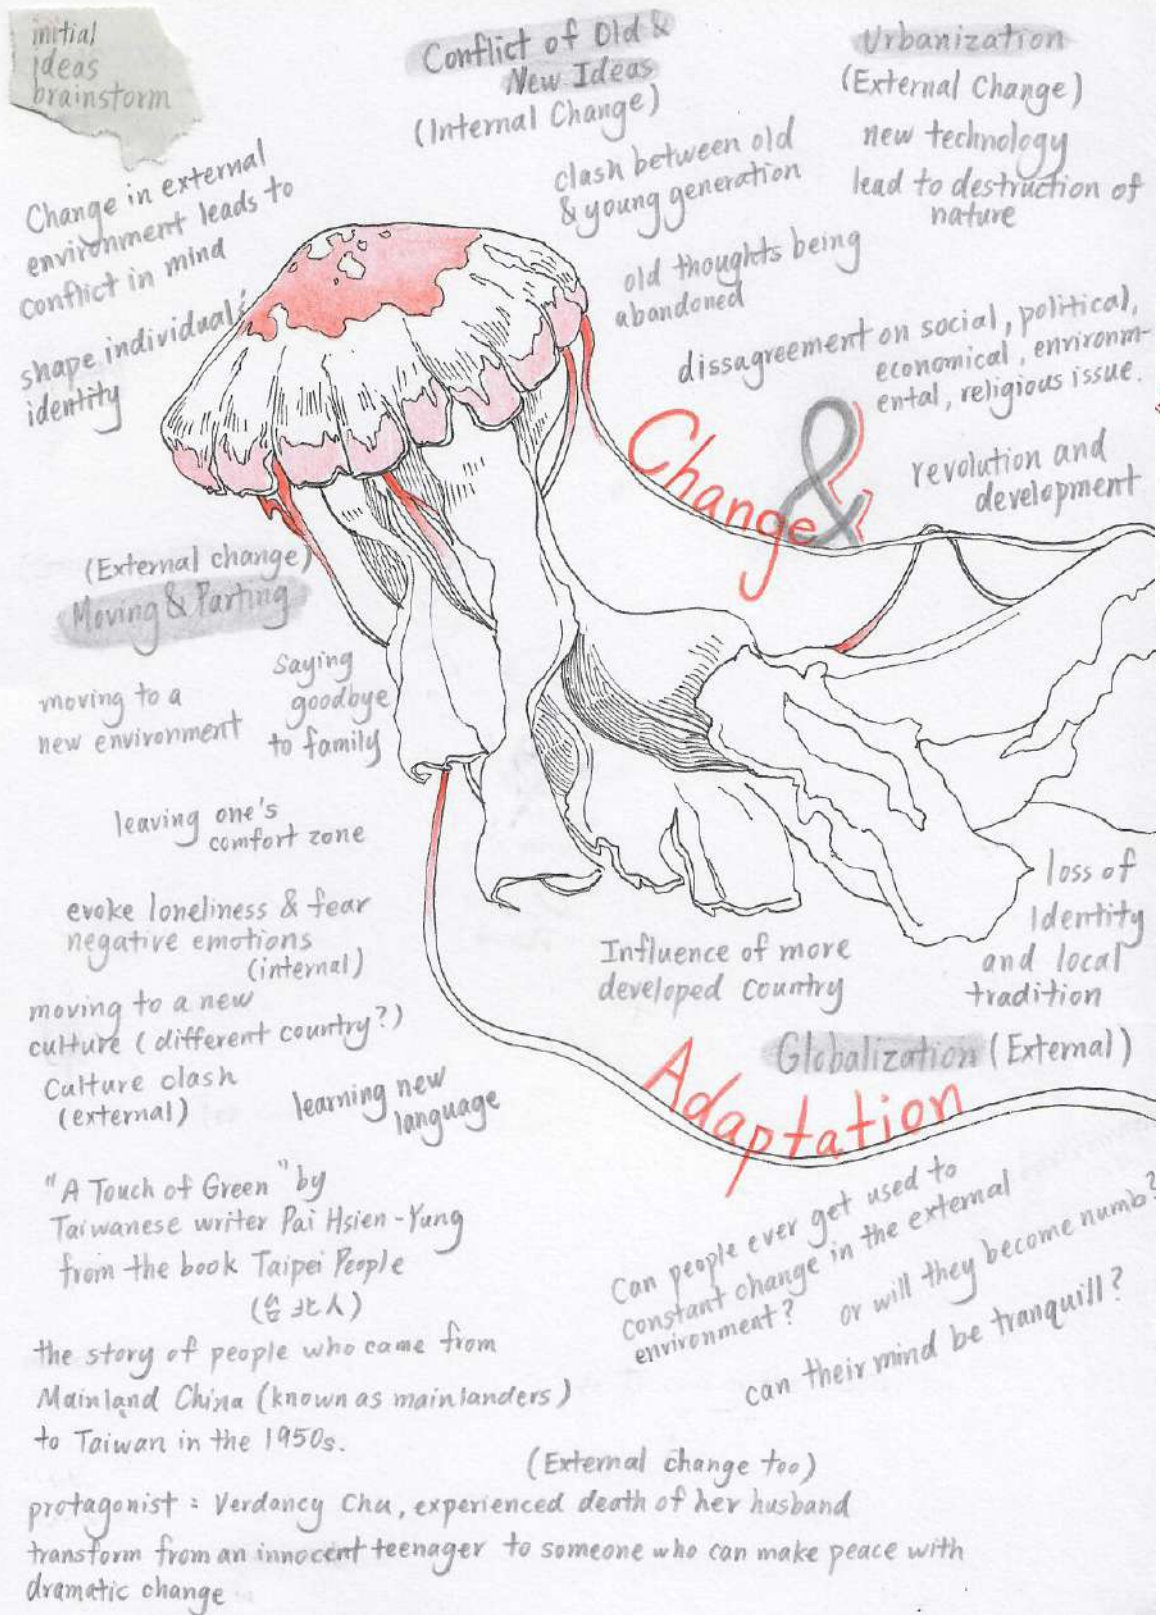 initial
ideas
brainstorm
Conflict of Old &
New Ideas
(Internal Change)
Urbanization
(External Change)
new technology
lead to destruction of
nature
clash between old
& young generation
old thoughts being
abandoned
dissagreement on social, political,
economical, environm-
ental, religious issue.
revolution and
development
Change in external
environment leads to
conflict in mind
shape individual's
identity
Change &
(External change)
Moving & Parting
moving to a
new environment
saying
goodbye
to family
leaving one's
comfort zone
evoke loneliness & fear
negative emotions
(internal)
moving to a new
culture (different country?)
Culture clash
(external)
learning new
language
Influence of more
developed country
loss of
Identity
and local
tradition
Globalization (External)
Adaptation
"A Touch of Green" by
Taiwanese writer Pai Hsien-Yung
from the book Taipei People
(台北人)
the story of people who came from
Mainland China (known as mainlanders)
to Taiwan in the 1950s.
Can people ever get used to
constant change in the external
environment?
or will they become numb?
can their mind be tranquill?
(External change too)
protagonist : Verdancy Chu, experienced death of her husband
transform from an innocent teenager to someone who can make peace with
dramatic change